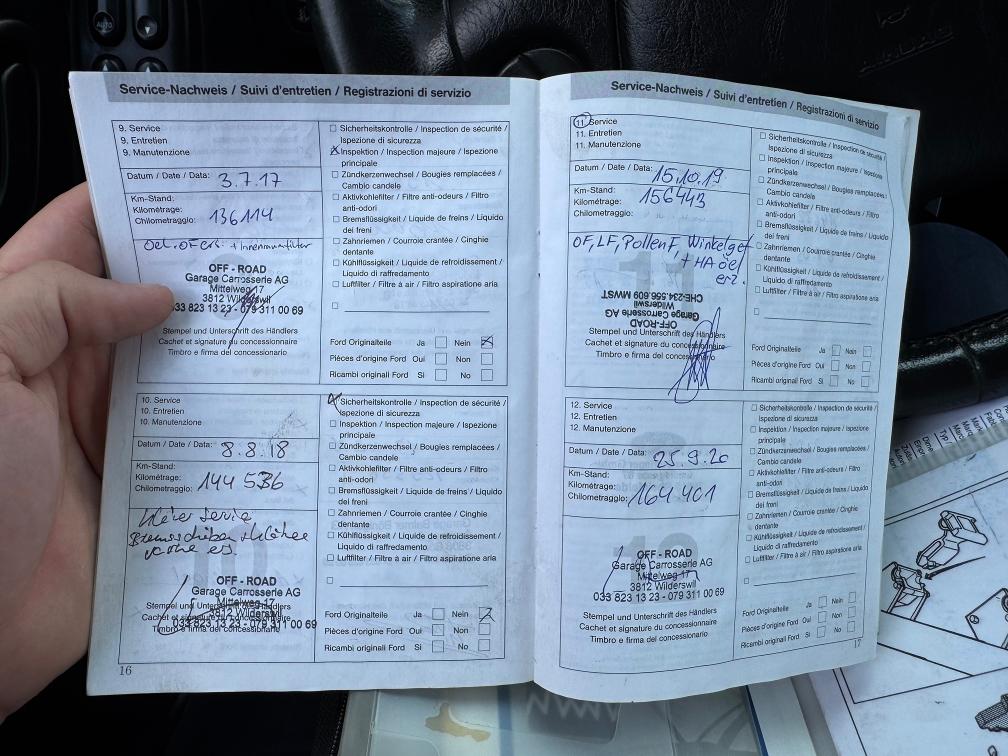 AUTO
AIRBAG
Service-Nachweis / Suivi d'entretien / Registrazioni di servizio
9. Service
9. Entretien
9. Manutenzione
Datum / Date / Data: 3.7.17
Km-Stand:
Kilométrage:
Chilometraggio: 136114
Oel. OF ers. + Innenraumfilter
OFF - ROAD
Garage Carrosserie AG
Mittelweg 17
3812 Wilderswil
033 823 13 23 - 079 311 00 69
Stempel und Unterschrift des Händlers
Cachet et signature du concessionnaire
Timbro e firma del concessionario
Sicherheitskontrolle / Inspection de sécurité /
Ispezione di sicurezza
Inspektion / Inspection majeure / Ispezione
principale
Zündkerzenwechsel / Bougies remplacées /
Cambio candele
Aktivkohlefilter / Filtre anti-odeurs / Filtro
anti-odori
Bremsflüssigkeit / Liquide de freins / Liquido
dei freni
Zahnriemen / Courroie crantée / Cinghie
dentante
Kühlflüssigkeit / Liquide de refroidissement /
Liquido di raffredamento
Luftfilter / Filtre à air / Filtro aspiratione aria
Ford Originalteile Ja Nein X
Pièces d'origine Ford Oui Non
Ricambi originali Ford Si No
10. Service
10. Entretien
10. Manutenzione
Datum / Date / Data: 8.8.18
Km-Stand:
Kilométrage:
Chilometraggio: 144 536
Service
OFF - ROAD
Garage Carrosserie AG
Mittelweg 17
3812 Wilderswil
033 823 13 23 - 079 311 00 69
Stempel und Unterschrift des Händlers
Cachet et signature du concessionnaire
Timbro e firma del concessionario
Sicherheitskontrolle / Inspection de sécurité /
Ispezione di sicurezza
Inspektion / Inspection majeure / Ispezione
principale
Zündkerzenwechsel / Bougies remplacées /
Cambio candele
Aktivkohlefilter / Filtre anti-odeurs / Filtro
anti-odori
Bremsflüssigkeit / Liquide de freins / Liquido
dei freni
Zahnriemen / Courroie crantée / Cinghie
dentante
Kühlflüssigkeit / Liquide de refroidissement /
Liquido di raffredamento
Luftfilter / Filtre à air / Filtro aspiratione aria
Ford Originalteile Ja Nein X
Pièces d'origine Ford Oui Non
Ricambi originali Ford Si No
16
Service-Nachweis / Suivi d'entretien / Registrazioni di servizio
11. Service
11. Entretien
11. Manutenzione
Datum / Date / Data: 15.10.19
Km-Stand:
Kilométrage: 156443
Chilometraggio:
OF, LF, PollenF, Winkelget
+ HA oel
erz.
CHE-234.556.609 MWST
Wilderswil
Garage Carrosserie AG
OFF-ROAD
Stempel und Unterschrift des Händlers
Cachet et signature du concessionnaire
Timbro e firma del concessionario
Sicherheitskontrolle / Inspection de sécurité /
Ispezione di sicurezza
Inspektion / Inspection majeure / Ispezione
principale
Zündkerzenwechsel / Bougies remplacées /
Cambio candele
Aktivkohlefilter / Filtre anti-odeurs / Filtro
anti-odori
Bremsflüssigkeit / Liquide de freins / Liquido
dei freni
Zahnriemen / Courroie crantée / Cinghie
dentante
Kühlflüssigkeit / Liquide de refroidissement /
Liquido di raffredamento
Luftfilter / Filtre à air / Filtro aspiratione aria
Ford Originalteile Ja Nein
Pièces d'origine Ford Oui Non
Ricambi originali Ford Si No
12. Service
12. Entretien
12. Manutenzione
Datum / Date / Data: 25.9.20
Km-Stand:
Kilométrage:
Chilometraggio: 164 401
OFF - ROAD
Garage Carrosserie AG
Mittelweg 17
3812 Wilderswil
033 823 13 23 - 079 311 00 69
Stempel und Unterschrift des Händlers
Cachet et signature du concessionnaire
Timbro e firma del concessionario
Sicherheitskontrolle / Inspection de sécurité /
Ispezione di sicurezza
Inspektion / Inspection majeure / Ispezione
principale
Zündkerzenwechsel / Bougies remplacées /
Cambio candele
Aktivkohlefilter / Filtre anti-odeurs / Filtro
anti-odori
Bremsflüssigkeit / Liquide de freins / Liquido
dei freni
Zahnriemen / Courroie crantée / Cinghie
dentante
Kühlflüssigkeit / Liquide de refroidissement /
Liquido di raffredamento
Luftfilter / Filtre à air / Filtro aspiratione aria
Ford Originalteile Ja Nein
Pièces d'origine Ford Oui Non
Ricambi originali Ford Si No
17